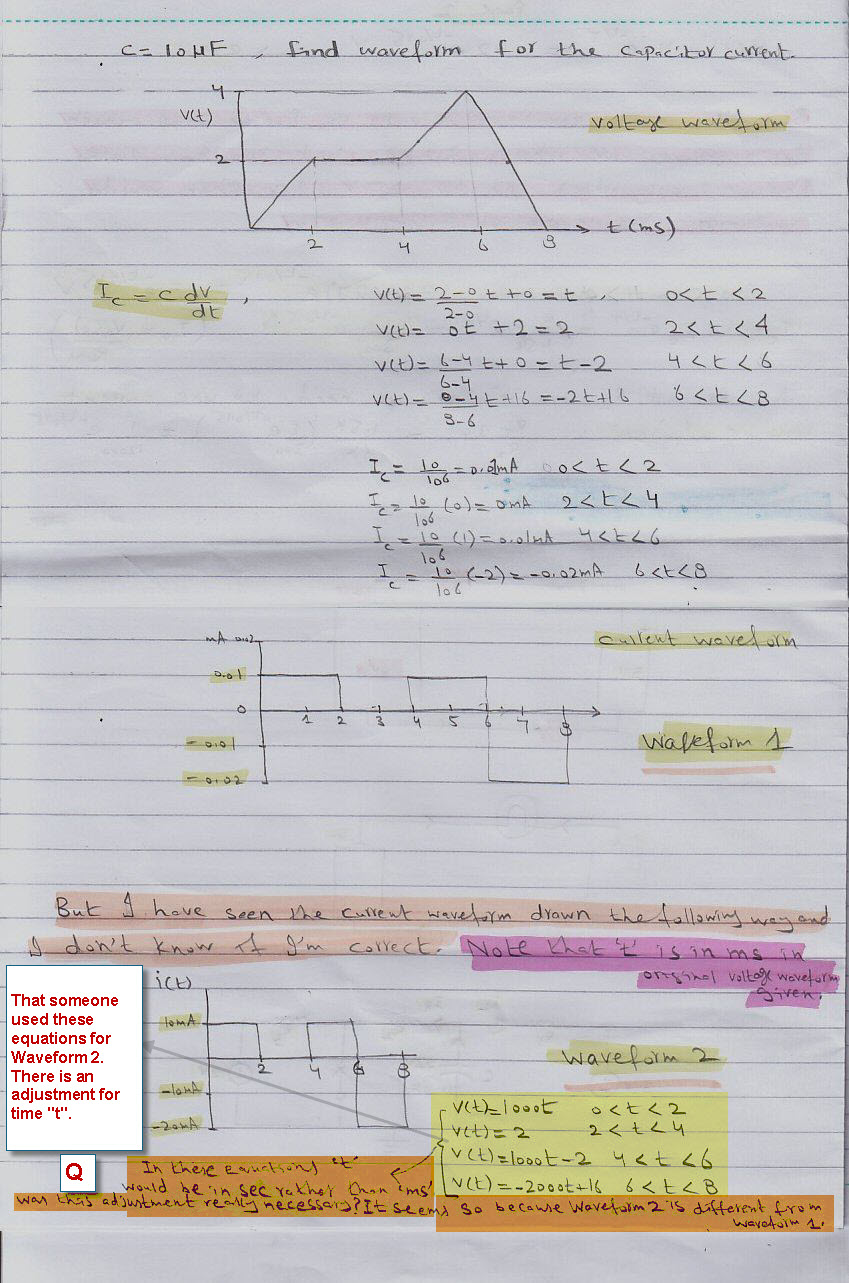 C = 10 µF , find waveform for the capacitor current.
4
V(t)
voltage waveform
2
2 4 6 8 t (ms)
I_c = C dv/dt ,
V(t) = 2-0/2-0 t + 0 = t , 0 < t < 2
V(t) = 0t + 2 = 2 2 < t < 4
V(t) = 6-4/6-4 t + 0 = t-2 4 < t < 6
V(t) = 0-4/8-6 t + 16 = -2t+16 6 < t < 8
I_c = 10/10^6 = 0.01mA 0 < t < 2
I_c = 10/10^6 (0) = 0mA 2 < t < 4
I_c = 10/10^6 (1) = 0.01mA 4 < t < 6
I_c = 10/10^6 (-2) = -0.02mA 6 < t < 8
mA 0.02
current waveform
0.01
0
1 2 3 4 5 6 7 8
-0.01
Waveform 1
-0.02
But I have seen the current waveform drawn the following way and
I don't know if I'm correct. Note that 't' is in ms in
original voltage waveform
given.
i(t)
10mA
2 4 6 8
-10mA
-20mA
Waveform 2
That someone
used these
equations for
Waveform 2.
There is an
adjustment for
time "t".
V(t)=1000t 0 < t < 2
V(t) = 2 2 < t < 4
V(t)=1000t-2 4 < t < 6
V(t)=-2000t+16 6 < t < 8
Q
In these equations 't'
would be in sec rather than 'ms'
was this adjustment really necessary? It seems so because Waveform 2 is different from
waveform 1.